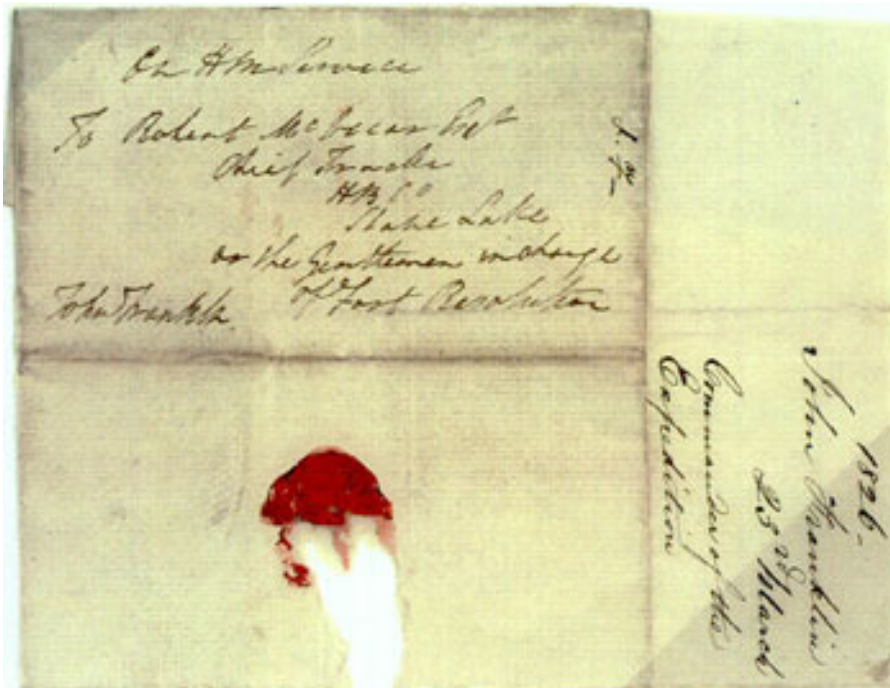 On HM Service
To Robert McVicar Esqr
Chief Trader
HB Co
Slave Lake
or the Gentlemen in charge
of Fort Resolution
John Franklin
1826 -
John Franklin
23rd March
Commander of the
Expedition